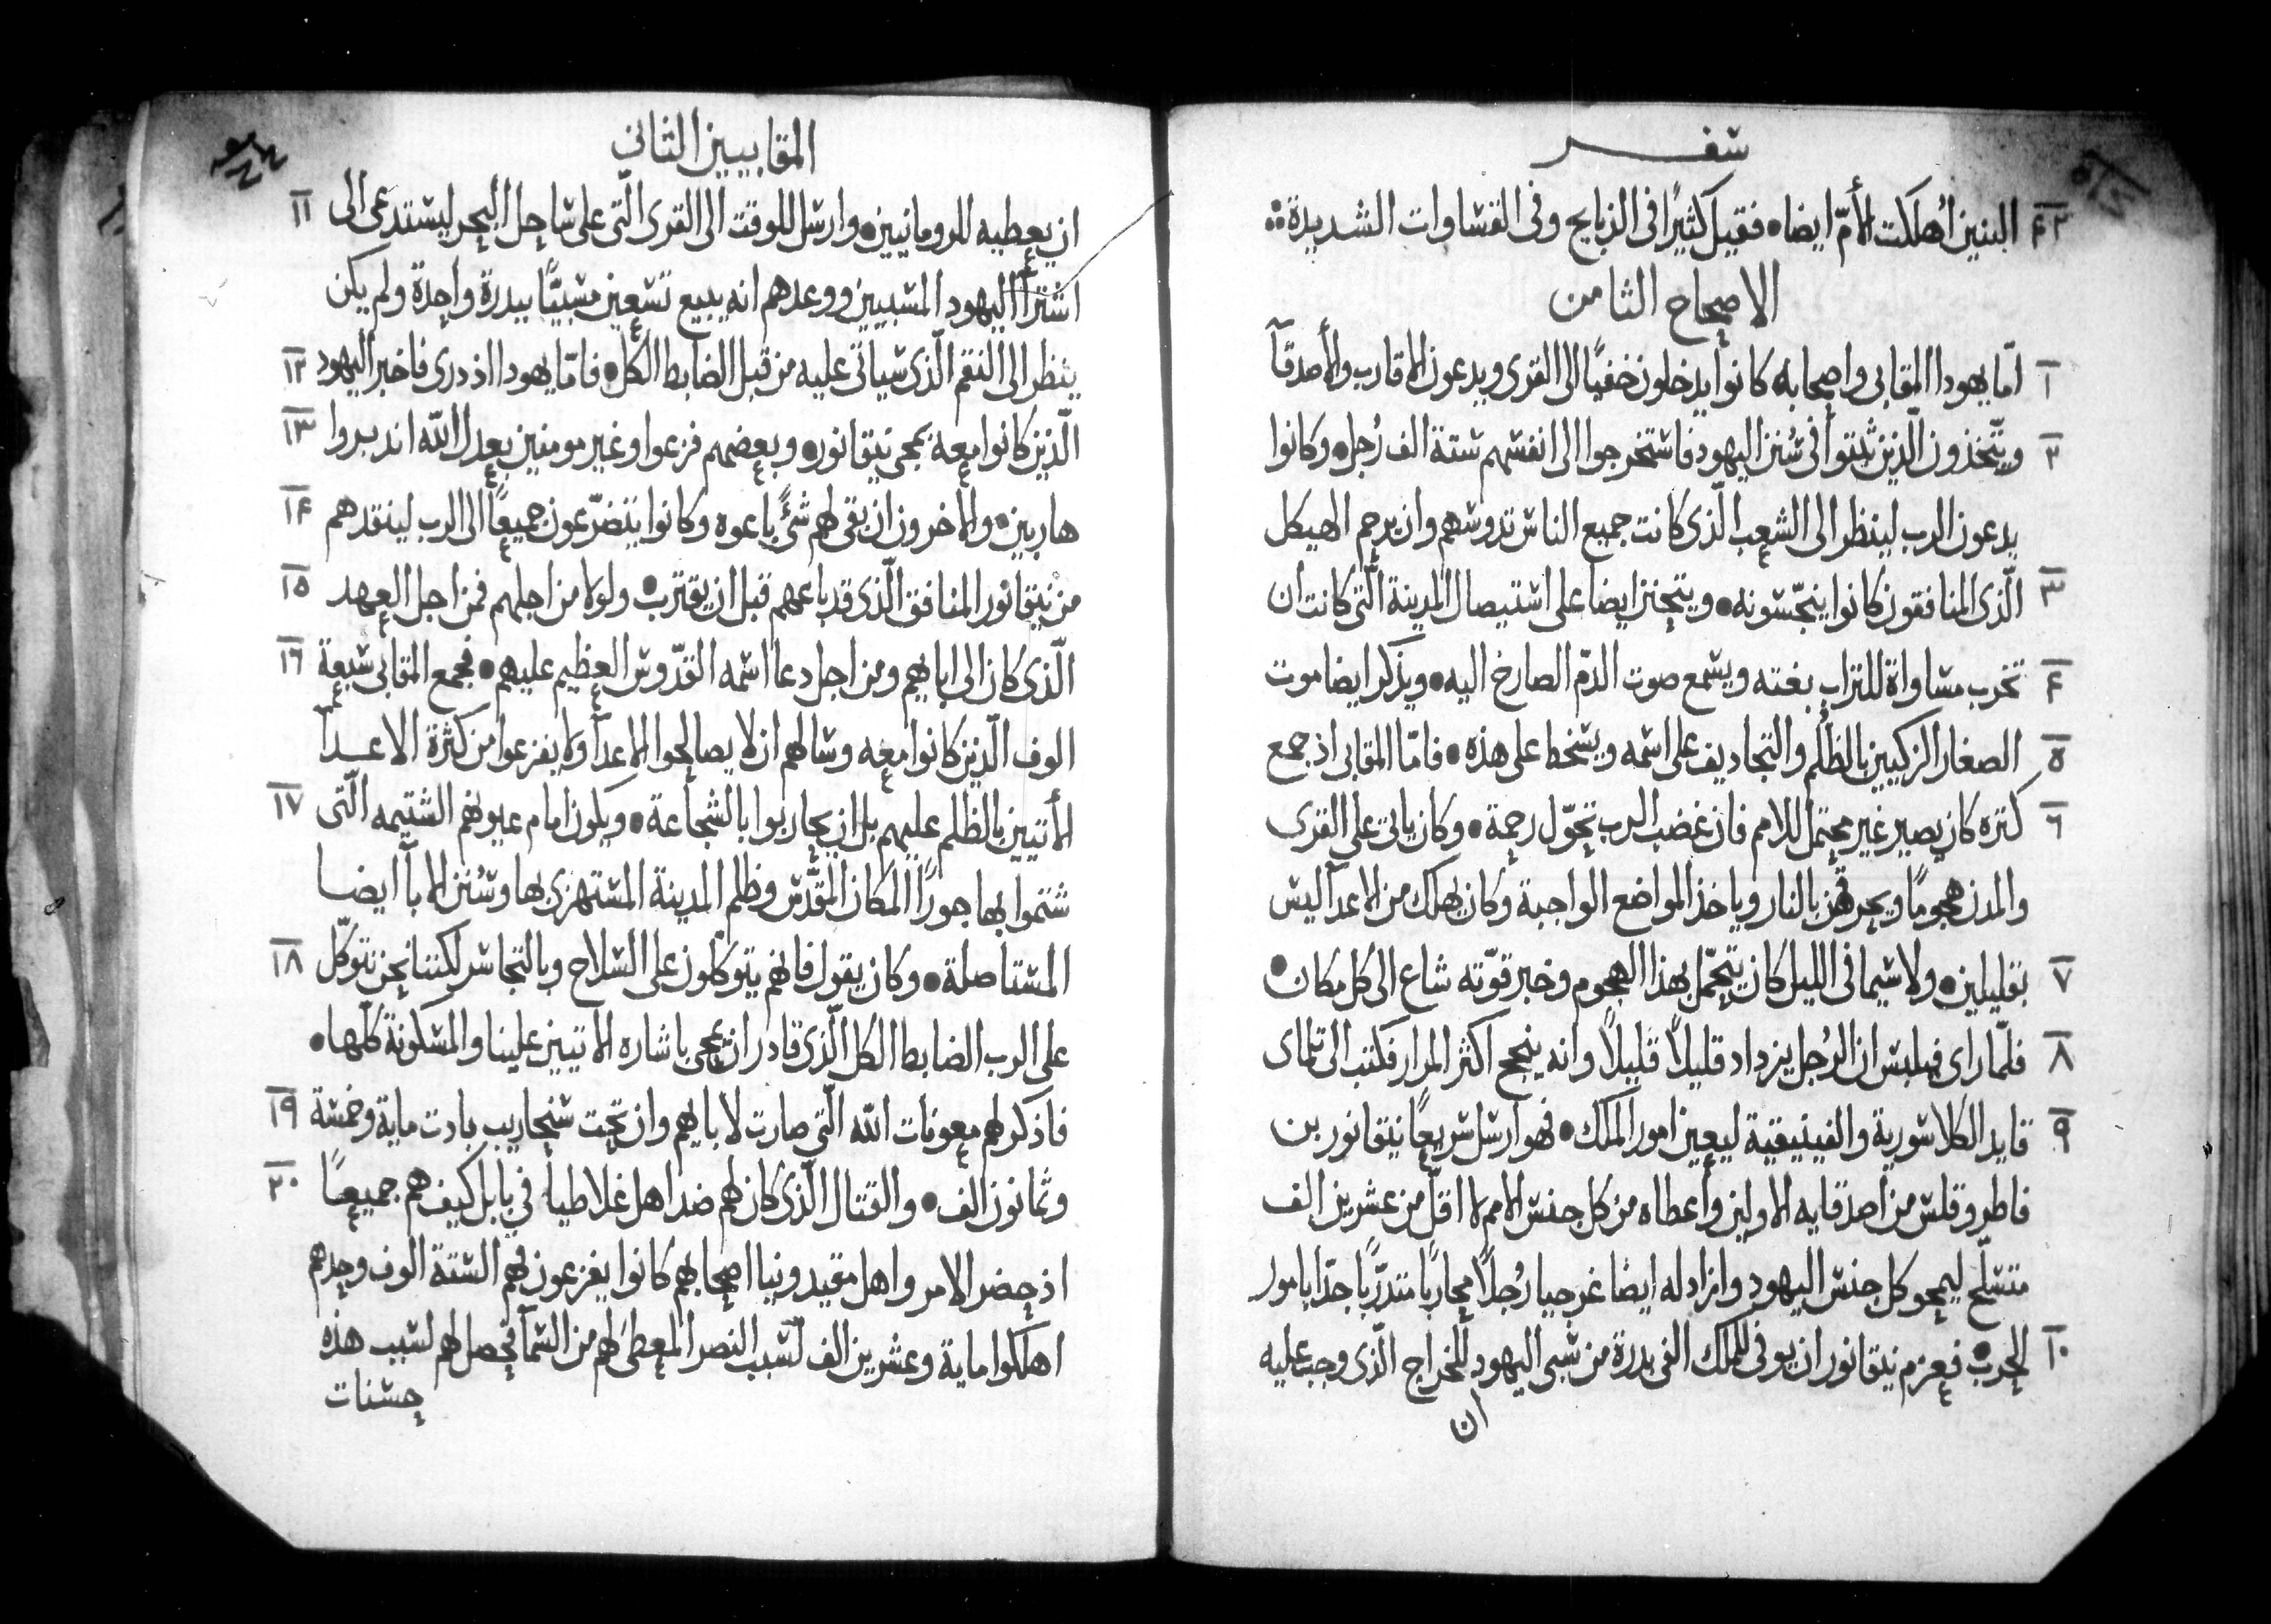 سفر
٤٢ البنين اُهلكت الأمّ ايضا • فقيل كثيرًا فى الذبايح وفى القساوات الشديدة
الاصحاح الثامن
١ امّا يهودا المقابى واصحابه كانوا يدخلون خفيًا الى القرى ويدعون الاقارب والأصدقآ
٢ ويتّخذون الّذين ثبتوا فى سُنن اليهود فاستخرجوا الى انفسهم ستة الف رُجل • وكانوا
يدعون الرب لينظر الى الشعب الّذى كانت جميع الناس تدوسهم وان يرحم الهيكل
٣ الّذى المنافقون كانوا ينجّسونه • ويتحنن ايضا على استيصال المدينة الّتى كانت ان
٤ تخرب مساواة للتراب بغته ويسمع صوت الدمّ الصارخ اليه • ويذكر ايضا موت
٥ الصغار الزكيين بالظلم والتجاديف على اسمه ويسخط على هذه • فامّا المقابى اذ جمع
٦ كتره كان يصير غير محتمل للامم فان غضب الرب تحوّل رحمة • وكان ياتى على القرى
والمدن هجومًا ويحرقهن بالنار وياخذ المواضع الواجبة وكان يهلك من الاعدآ ليس
٧ بقليلين • ولا سيما فى الليل كان يتحمّل بهذا الهجوم وخبر قوّته شاع الى كل مكان •
٨ فلمّا راى فيلبس ان الرُجل يزداد قليلاً قليلاً وانه ينجح اكثر المرار فكتب الى تلماى
٩ قايد الكلاسورية والفينيقية ليعين امور الملك • فهو ارسل سريعًا نيقانور بن
فاطروقلس من اصدقايه الاولين وأعطاه من كل جنس الامم لا اقلّ من عشرين الف
متسلّح ليمحو كل جنس اليهود وازاد له ايضا غرجيا رُجلاً محاربًا متدرّبًا جدّا بامور
١٠ الحرب • فعزم نيقانور ان يوفى للملك الفى بدرة من سبى اليهود للخراج الّذى وجب عليه
ان
المقابيين الثانى
١١ ان يعطيه للرومانيين • وارسل للوقت الى القرى الّتى على ساحل البحر ليستدعى الى
اشترأ اليهود المسبيين ووعدهم انه يبيع تسعين مسبيًّا ببدرة واحدة ولم يكن
١٢ ينظر الى النقم الّذى سياتى عليه من قبل الضابط الكل • فامّا يهودا اذ درى فاخبر اليهود
١٣ الّذين كانوا معه بمجى نيقانور • وبعضهم فزعوا وغير مومنين بعدل الله اندبروا
١٤ هاربين • والاخرون ان بقى لهم شئ باعوه وكانوا يتضرّعون جميعًا الى الرب لينقدهم
١٥ من نيقانور المنافق الّذى قد باعهم قبل ان يقترب • ولو لا من اجلهم فمن اجل العهد
١٦ الّذى كان الى ابايهم ومن اجل دعا اسمه القدّوس العظيم عليهم • فجمع المقابى سبعة
الوف الّذين كانوا معه وسالهم ان لا يصالحوا الاعدآ ولا يفزعوا من كثرة الاعدآ
١٧ الأتيين بالظلم عليهم بل ان يحاربوا بالشجاعة • ويكون امام عيونهم الشتيمه الّتى
شتموا بها جورًا المكان المقدّس وظلم المدينة المستهزى بها وسُنن الابآ ايضا
١٨ المستاصلة • وكان يقول فانهم يتوكلون على السلاح وبالتجاسر لكننا نحن نتوكّل
على الرب الضابط الكل الّذى قادر ان يمحى باشاره الأتيين علينا والمسكونة كلّها •
١٩ فاذكر لهم معونات الله الّتى صارت لابايهم وان تحت سنحاريب بادت ماية وخمسة
٢٠ وثمانون الف • والقتال الّذى كان لهم ضد اهل غلاطيا في بابل كيف هم جميعًا
اذ حضر الامر واهل مقيدونيا اصحابهم كانوا يفزعون فهم الستة الوف وحدهم
اهلكوا ماية وعشرين الف لسبب النصر المعطى لهم من السمآ فحصل لهم لسبب هذه
حسنات